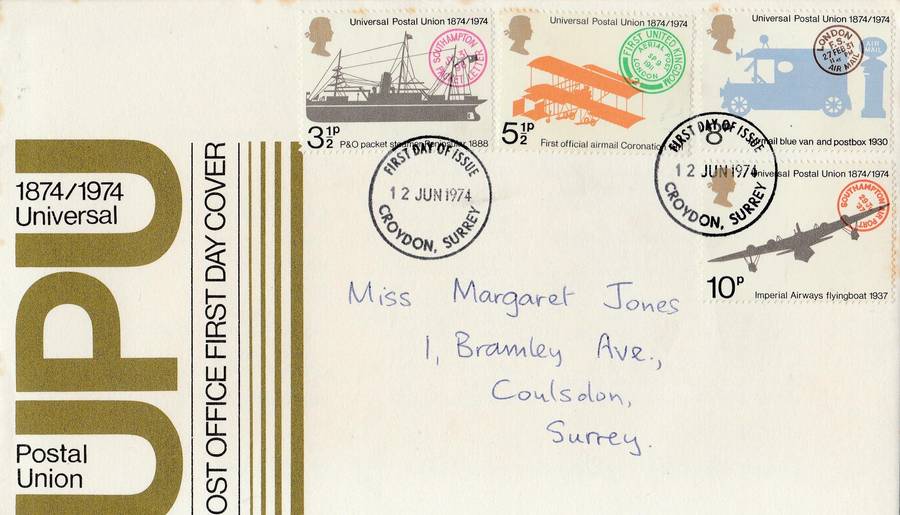 Universal Postal Union 1874/1974
SOUTHAMPTON
PACKET LETTER
3½P
P&O packet steamer Peninsular 1888
Universal Postal Union 1874/1974
FIRST UNITED KINGDOM
AERIAL POST
SP 9
1911
LONDON
5½P
First official airmail Coronation
Universal Postal Union 1874/1974
LONDON
F.S.
27 FEB 31
AIR MAIL
AIR
MAIL
8
Airmail blue van and postbox 1930
Universal Postal Union 1874/1974
SOUTHAMPTON
AIR PORT
10P
Imperial Airways flyingboat 1937
FIRST DAY OF ISSUE
12 JUN 1974
CROYDON, SURREY
FIRST DAY OF ISSUE
12 JUN 1974
CROYDON, SURREY
1874/1974
Universal
UPU
Postal
Union
OST OFFICE FIRST DAY COVER
Miss Margaret Jones
1, Bramley Ave.,
Coulsdon,
Surrey.